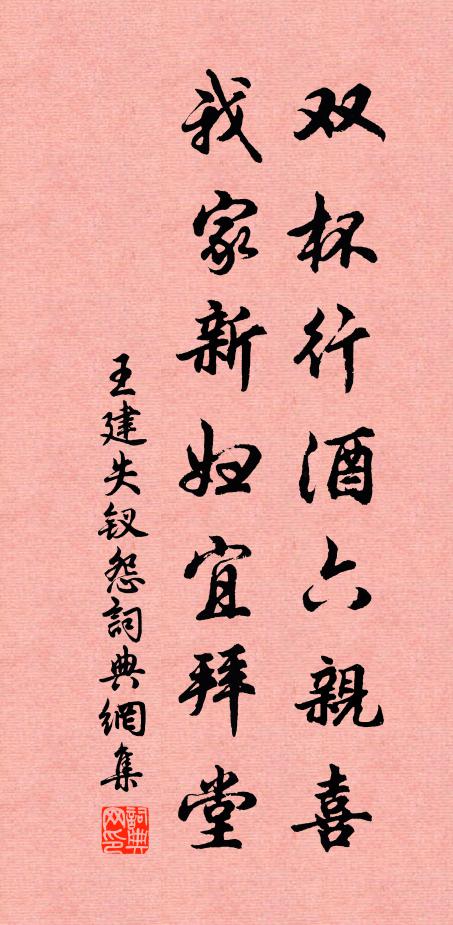 双杯行酒六親喜
我家新妇宜拜堂
王建失钗怨詞典網集
詞典网印